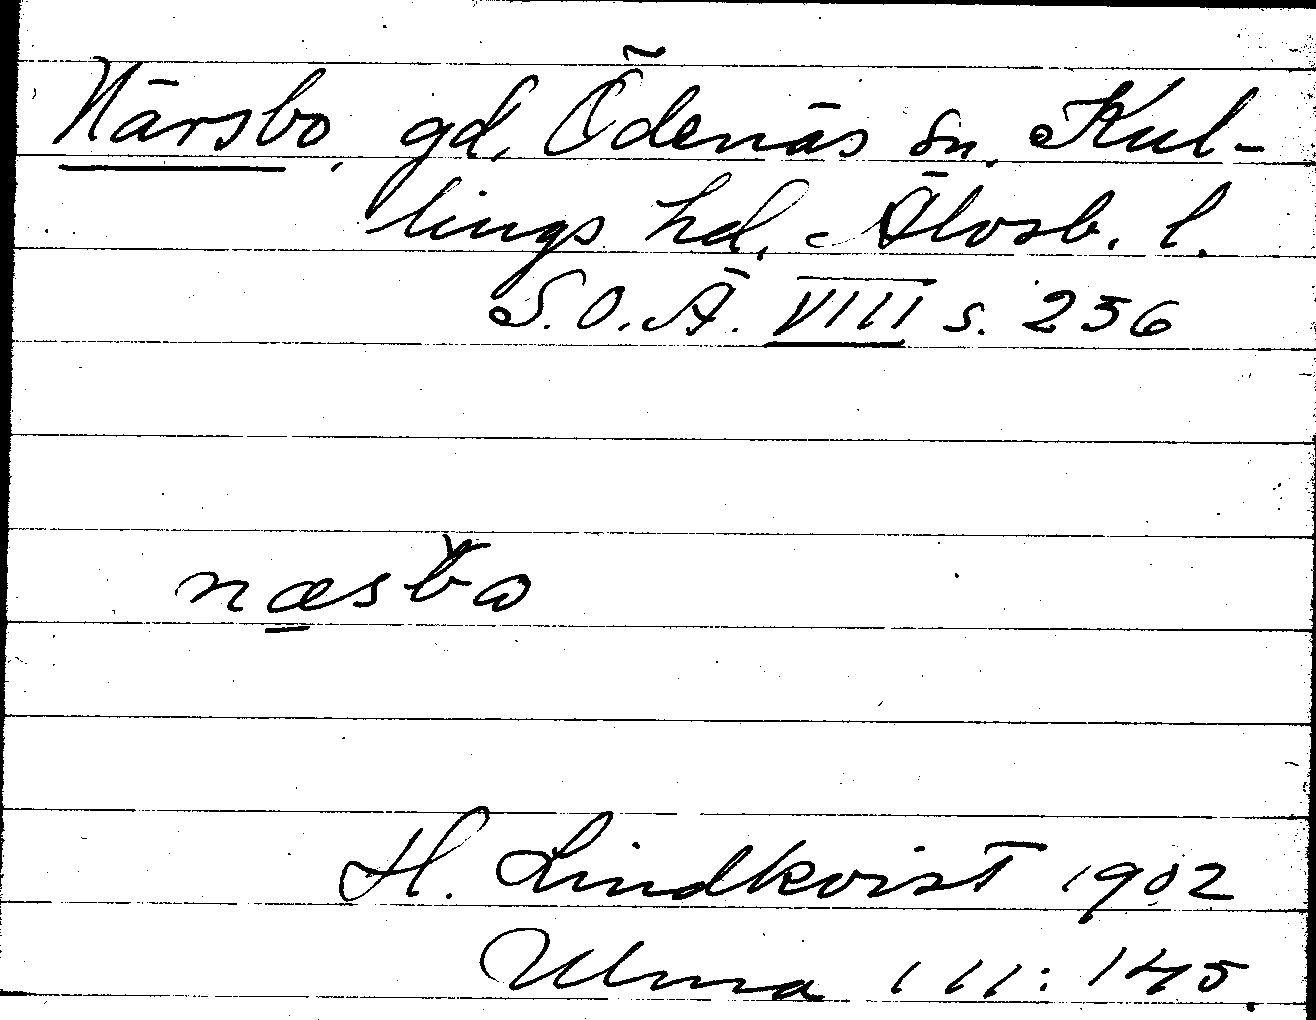 Närsbo, gd, Ödenäs sn, Kul-
lings hd, Älvsb. l.
S.O.Ä. VIII s. 256
næsbo
H. Lindkvist 1902
Ulma 111:145.